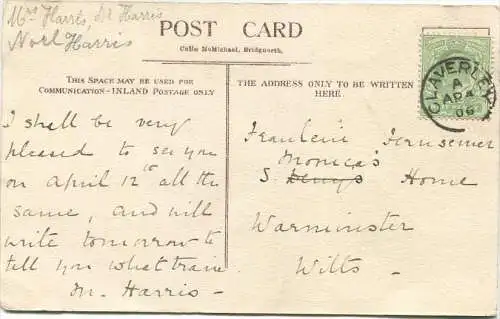 Mrs Harris, Dr Harris
Noel Harris
POST CARD
Colin McMichael, Bridgnorth.
THIS SPACE MAY BE USED FOR
COMMUNICATION—INLAND POSTAGE ONLY
THE ADDRESS ONLY TO BE WRITTEN
HERE.
CLAVERLEY
A
AP 4
06
I shall be very
pleased to see you
on April 12th all the
same, and will
write tomorrow to
tell you what train
M. Harris -
Fraulein
Monica's
S. Denys Home
Warminster
Wilts -